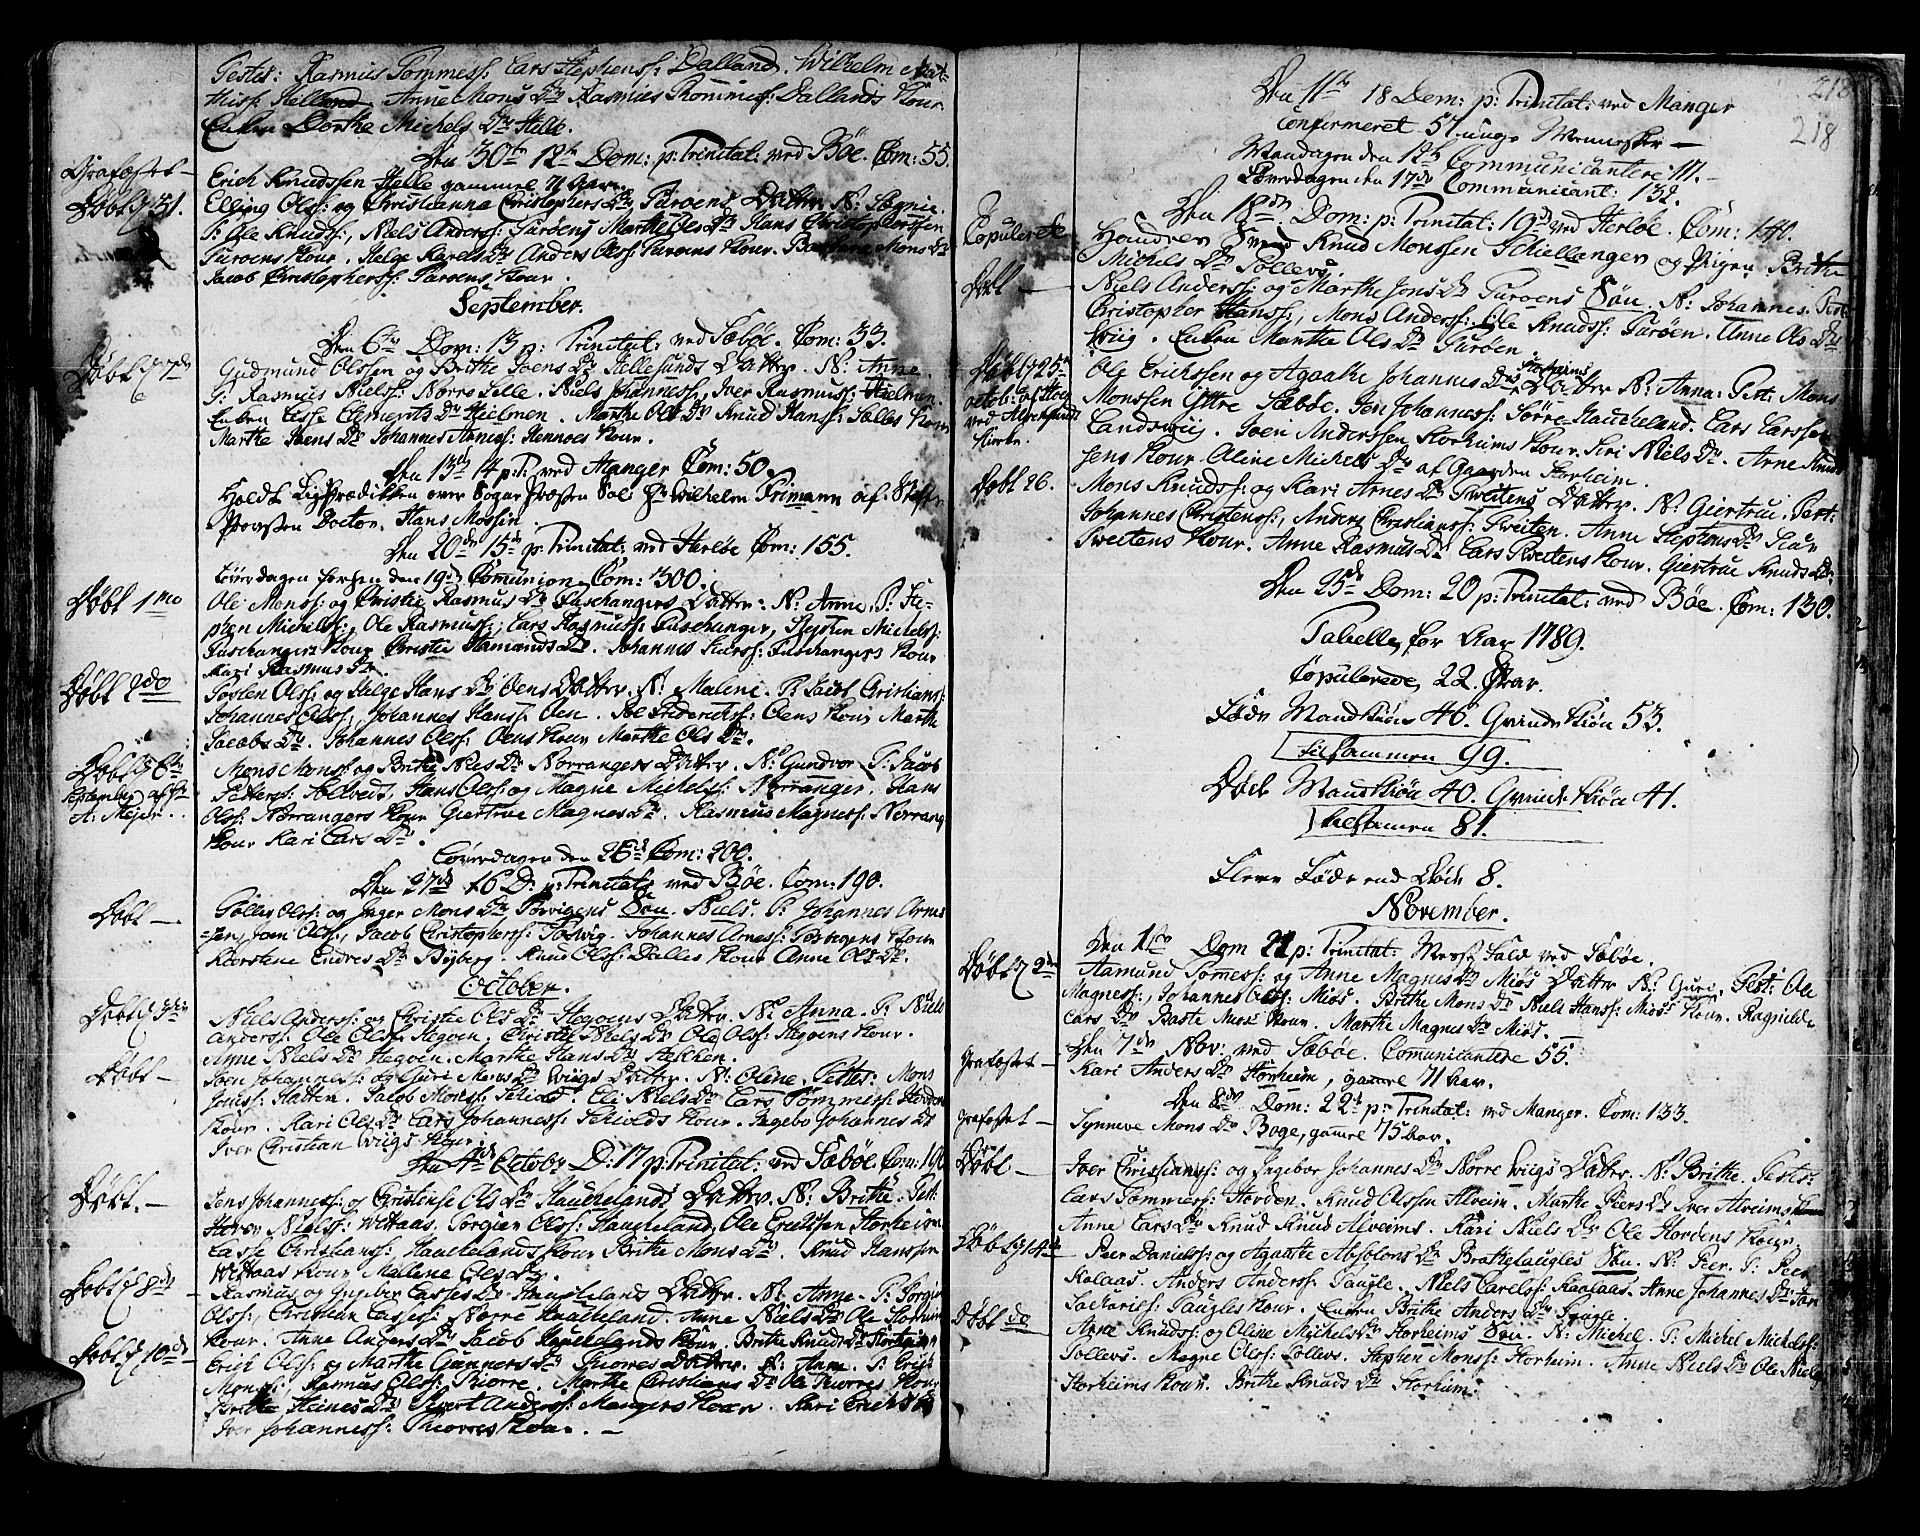 Testes: Rasmus Tommess: Lars Stephenss: Dalland. Wilhelm Mat-
thiss: Helland. Anne Mons Dr Rasmus Tommess: Dallands Kour
Enken Dorthe Michels Dr Helle.
Den 30te 12te Dom: p: Trinitat: ved Böe. Com: 55.
Grafæstet —
Erich Knudssen Helle gammel 71 Aar.
Döbt d 31.
Elling Olss: og Christianna Christophers Dr Turöens Datter N: Magnie.
T: Ole Knudss:, Niels Anderss: Turöens Marthe Ols Dr Hans Christopherssen
Turöens Kour. Helge Karels Dr Anders Olss: Turöens Kour. Barbara Mons Dr
Jacob Christopherss: Turöens Kour.
September.
Den 6te Dom: 13 p: Trinitat: ved Sæböe. Com: 33.
Döbt d 7de
Gudmund Olssen og Brithe Joens Dr Hellesunds Datter. N: Anne.
T: Rasmus Nielss: Nörre Lille. Niels Johanness:, Iver Rasmuss: Hielmen.
Enken Lisse Clements Dr Hielmen. Marthe Ols Dr Knud Hanss: Kour
Marthe Joens Dr Johannes Arness: Hennoes Kour.
Den 13de 14 p: T: ved Manger Com: 50.
Holdt Ligprædikken over Sogne Præsten Sal: Hr Wilhelm Frimann af Stifts
Provsten Doctor Hans Mossin.
Den 20de 15de p: Trinitat: ved Herlöe Com: 155.
Löverdagen forhen den 19de Comunion. Com: 300.
Döbt 1mo
Ole Monss: og Christie Rasmus Dr Fuschangers Datter: N: Anne. T: Ste-
phen Michelss:, Ole Rasmuss:, Lars Rasmuss: Fuschanger, Stephen Michelss:
Fuschangers Kour Christie Dr. Johannes Fuschangers Kour
Kari Rasmus Dr.
Döbt 2do
Olss: og Helge Hans Dr Oens Datter. N: Malene. T: Jacob Christianss:
Johannes Olss:, Johannes Hanss: Oen. Frederichss: Oens Kour Marthe
Jacobs Dr. Johannes Olss: Oens Kour Marthe Ols Dr.
Döbt d 6te
September af Hr
A: Mejer.
Mons Monss: og Brithe Niels Dr Norrangers Datter. N: Gundvor T: Jacob
Petterss: Hans Olss: og Magne Michelss: Norranger. Hans
Olss: Norrangers Kour Giertrue Magnes Dr. Rasmus Magness: Norrang
Kour Kari Lars Dr.
Löverdagen den 26de Com: 200.
Den 27de 16 D: p: Trinitat: ved Böe. Com: 190.
Döbt —
Tollev Olss: og Inger Mons Dr Söen. Niels. T: Johannes Arnes-
sen, Joen Olss:, Jacob Christopherss: Johannes Arness: Kour
Kierstene Endres Dr Bÿberg. Knud Olss: Dalles Kour Anne Ols Dr.
October.
Döbt d 3die
Niels Anderss: og Christie Ols Dr Hegoens Datter. N: Anna. T: Niels
Anderss: Ole Olss: Hegoen. Christie Niels Dr Ole Olss: Hegoens Kour.
Anne Niels Dr Hegoen. Marthe Hans Dr
Döbt —
Joen Johanness: og Guri Mons Dr Wiigs Datter. N: Oline. Testes: Mons
Jonss: Hatten. Jacob Monss: Eli Niels Dr Lars Tommess: Horden
Kour. Kari Ols Dr Lars Johanness: Kour. Ingebo Johannes Dr
Iver Christian Wiigs
Den 4de Octobr D: 17 p: Trinitat: ved Sæböe. Com: 190
Döbt. —
Jens Johanness: og Christense Ols Dr Hauchelands Datter. N: Brithe. Test:
Nielss: Wetaas. Torgier Olss: Haucheland, Ole Erichssen Storheim
Lasse Christianss:, Hauchelands Kour Brithe Mons Dr. Knud Hanssen
Wetaas Kour Malene Ols Dr.
Döbt d 8de —
Rasmus og Ingebor Lasses Dr Hauchelands Datter. N: Anne. T: Torgier
Olss:, Christian Lassess: Nörre Haucheland. Anne Niels Dr Ole Storheim
Kour. Anne Anders Dr Jacob Hauchelands Kour. Brithe Knuds Dr Storheim
Döbt d 10de
Erich Olss: og Marthe Gunners Dr Tiorres Datter. N: Anne. T: Erich
Monss:, Rasmus Olss: Tiorre. Marthe Christians Dr Ole Tiorres Kour
Brithe Heines Dr Anderss: Mangers Kour. Kari Erichs Dr
Iver Johanness: Tiorres Kour. —
218
218
Den 11te 18 Dom: p: Trinitat: ved Manger
Confirmeret 57 unge Mennesker —
Mandagen den 12te Communicantere 111. —
Löverdagen den 17de Communicant: 132.
Den 18de Dom: p: Trinitat: 19de ved Herlöe. Com: 140.
Copulerede
Knud Monssen Schiellanger og Pigen Brithe
Michels Dr Tollevs.
Döbt —
Niels Anderss: og Marthe Jons Dr Turöens Sön. N: Johannes. Test:
Christopher Hanss:, Mons Anderss: Ole Knudss: Turöen. Anne Ols Dr
Wiig. Enken Marthe Ols Dr Turöen.
Döbt d 25de
octob:
ved
Kirke.
Ole Erickssen og Agathe Johannes Dr Storheims Datter N: Anna. Test: Mons
Monssen Ÿttre Sæböe. Jen Johanness: Sörre Haucheland. Lars Larssen
Landswiig. Joen Anderssen Storheims Kour. Siri Niels Dr. Arne Knuds
Jens Kour. Aline Michels Dr af Gaarden Storheim.
Döbt 26.
Mons Knudss: og Kari Arnes Dr Tweitens Datter. N: Giertrue. Test:
Johannes Christenss:, Anders Christianss: Tweiten. Anne Stephens Dr
Tweitens Kour. Anne Rasmus Dr Lars Tweitens Kour. Giertrue Knuds Dr
Den 25de Dom: 20 p: Trinitat: ved Böe. Com: 130.
Tabelle for Aar 1789.
Copulerede 22. Par.
Födde Mandkiön 46. Qvindekiön 53.
tilsammen 99.
Döde Mandkiön 40. Qvindekiön 41.
tilsammen 81.
Flere Födde end Döde 8.
November.
Den 1ste Dom 21 p: Trinitat: Messe Fald ved Sæböe.
Döbt d 2den
Aamund Tommess: og Anne Magnes Dr Miös Datter N: Guri. Test: Ole
Magness:, Johannes Olss: Miös. Brithe Mons Dr Niels Hanss: Miös Kour. Ragnilde
Lars Dr Baste Miös Kour. Marthe Magnes Dr Miös.
Den 7de Nov: ved Sæböe. Comunicantere 55.
Grafæstet —
Kari Anders Dr Storheim, gamel 71 Aar.
Den 8de Dom: 22de p: Trinitat: ved Manger. Com: 133.
Grafæstet —
Synneve Mons Dr Boge, gamel 75 Aar.
Döbt —
Iver Christianss: og Ingebor Johannes Dr Nörre Wiigs Datter. N: Brithe. Test:
Lars Tommess: Horden. Knud Olssen Alveim. Marthe Peers Dr Iver Alveims Kour
Anne Lars Dr Knud Knud Alveims. Kari Niels Dr Ole Hordens Kour.
Döbt d 14de
Peer Danielss: og Agathe Absolons Dr Brathetaugles Sön. N: Peer. T: Peer
Kolaas. Anders Anderss: Taugle. Niels Carelss: Kaalaas. Anne Johannes Dr
Zackariss: Taugles Kour. Enken Brithe Anders Dr Taugle.
Döbt do
Arne Knudss: og Oline Michels Dr Storheims Sön. N: Michel. T: Michel Michelss:
Tollevs. Magne Olss: Tollevs. Stephen Monss: Storheim. Anne Niels Dr Ole Niels
Storheims Kour. Brithe Knuds Dr Storheim.